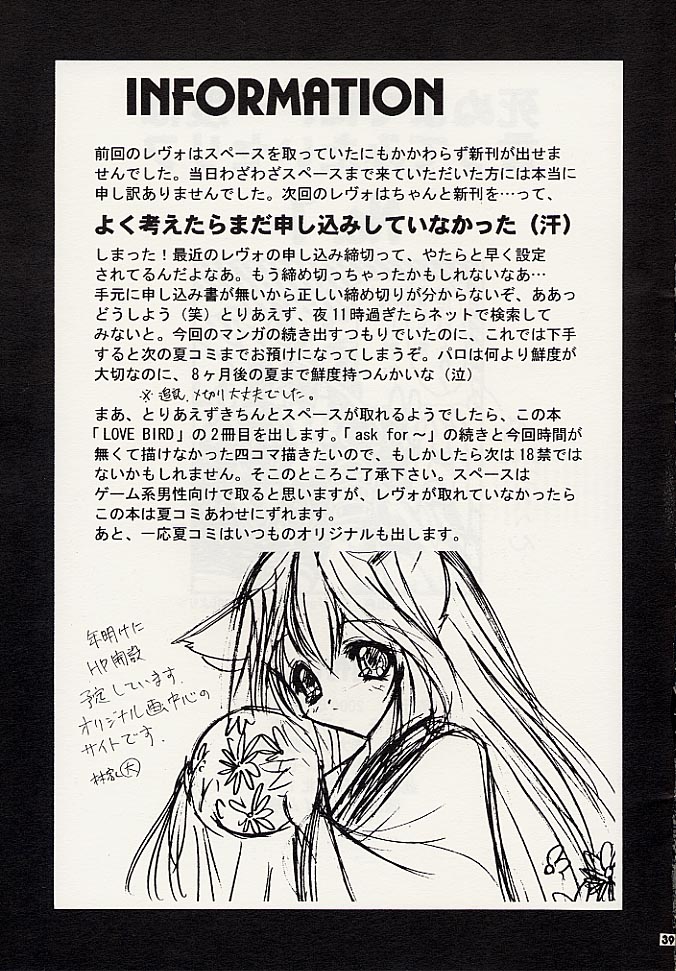 INFORMATION
前回のレヴォはスペースを取っていたにもかかわらず新刊が出せま
せんでした。当日わざわざスペースまで来ていただいた方には本当に
申し訳ありませんでした。次回のレヴォはちゃんと新刊を…って、
よく考えたらまだ申し込みしていなかった（汗）
しまった！最近のレヴォの申し込み締切って、やたらと早く設定
されてるんだよなあ。もう締め切っちゃったかもしれないなあ…
手元に申し込み書が無いから正しい締め切りが分からないぞ、ああっ
どうしよう（笑）とりあえず、夜11時過ぎたらネットで検索して
みないと。今回のマンガの続き出すつもりでいたのに、これでは下手
すると次の夏コミまでお預けになってしまうぞ。パロは何より鮮度が
大切なのに、8ヶ月後の夏まで鮮度持つんかいな（泣）
※追記、〆切り大丈夫でした。
まあ、とりあえずきちんとスペースが取れるようでしたら、この本
「LOVE BIRD」の2冊目を出します。「ask for～」の続きと今回時間が
無くて描けなかった四コマ描きたいので、もしかしたら次は18禁では
ないかもしれません。そこのところご了承下さい。スペースは
ゲーム系男性向けで取ると思いますが、レヴォが取れていなかったら
この本は夏コミあわせにずれます。
あと、一応夏コミはいつものオリジナルも出します。
年明けに
HP開設
予定しています。
オリジナル画中心の
サイトです。
39